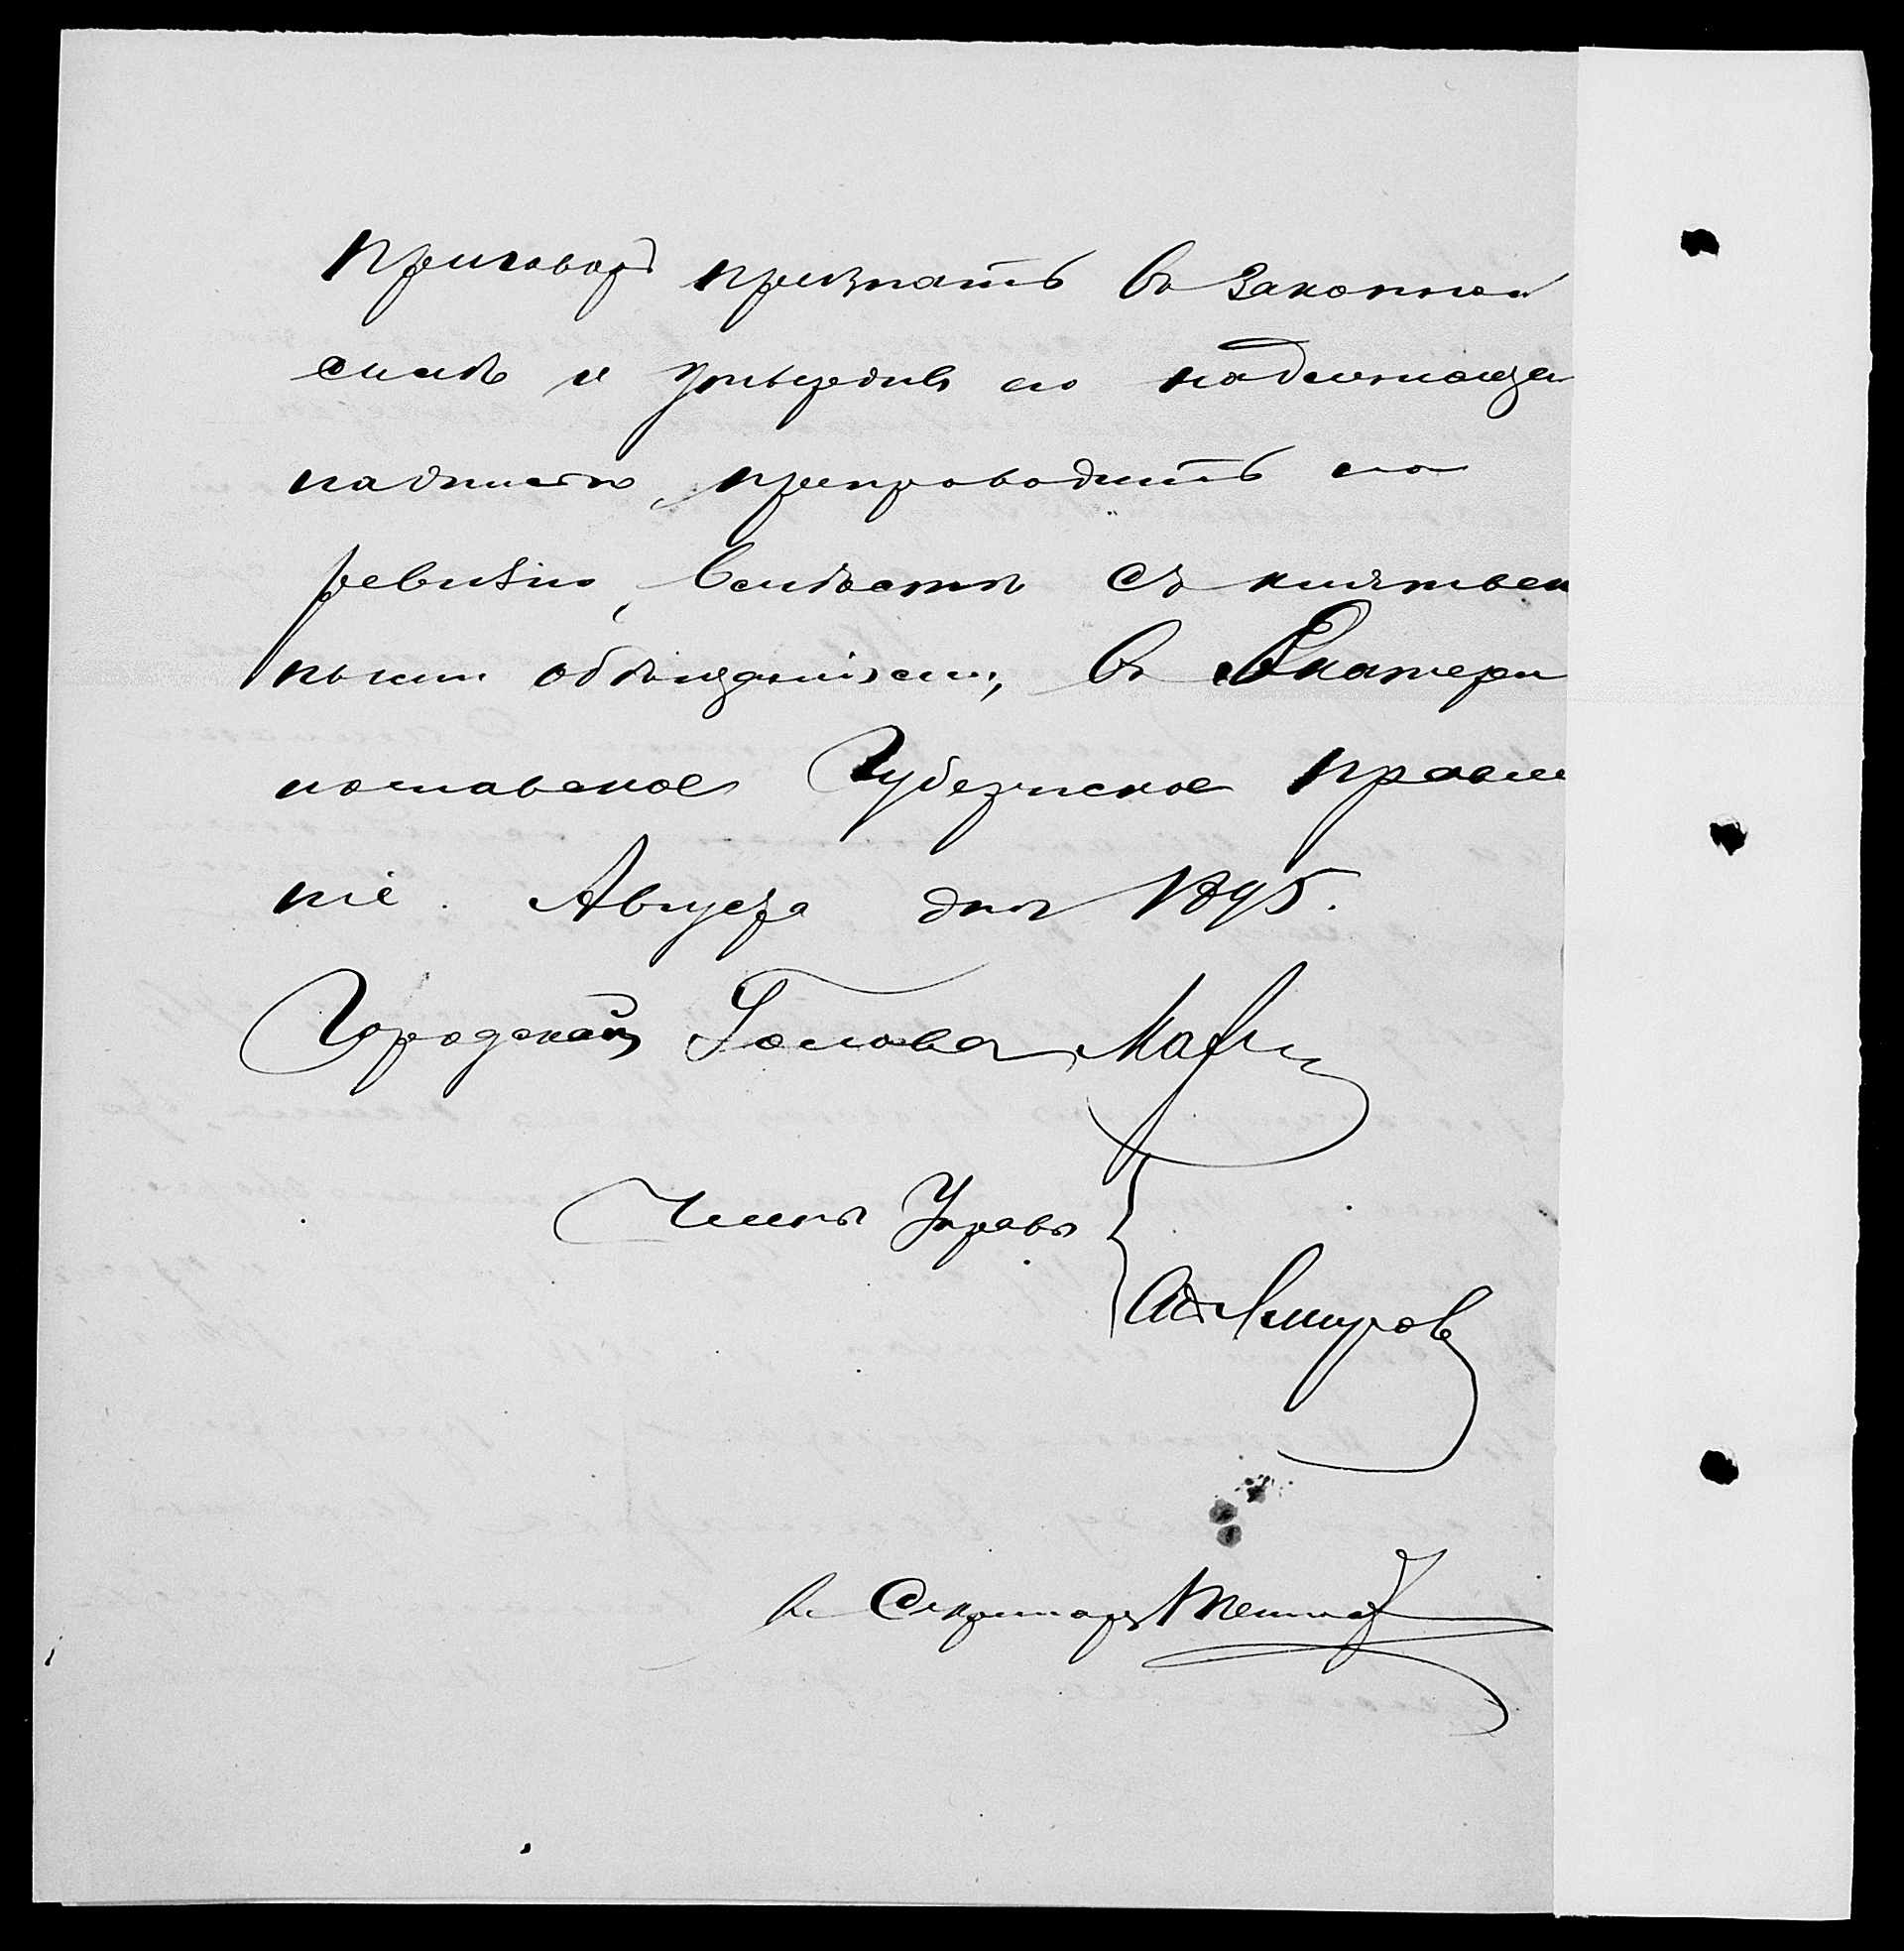 приговоръ признать въ законной
силѣ и утвердивъ его надлежаще
надписью, препроводить на
ревизію, вмѣстѣ съ клятвен
нымъ обѣщаніемъ, въ Екатери
нославское Губернское Правле
ніе. Августа дня 1895.
Городской Голова
Члены Управы
Секретарь